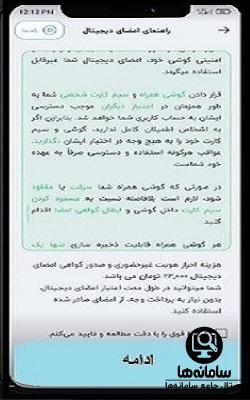 12:12 PM
راهنمای امضای دیجیتال
امنیتی گوشی خود، امضای دیجیتال شما غیرقابل
استفاده میگردد.
قرار دادن گوشی همراه و سیم کارت شخصی شما به
طور همزمان در اختیار دیگران موجب دسترسی
ایشان به حساب کاربری شما خواهد شد. بنابراین اگر
به اشخاص اطمینان کامل ندارید، گوشی و سیم
کارت خود را به هیچ وجه در اختیار ایشان نگذارید.
عواقب هرگونه استفاده و دسترسی صرفاً به عهده
خود شماست.
در صورتی که گوشی همراه شما سرقت یا مفقود
شود، لازم است بلافاصله نسبت به مسدود کردن
سیم کارت داخل گوشی و ابطال گواهی امضا اقدام
کنید.
هر گوشی همراه قابلیت ذخیره سازی تنها یک
هزینه احراز هویت غیرحضوری و صدور گواهی امضای
دیجیتال ۲۳,۰۰۰ تومان می باشد.
شما میتوانید در طول مدت اعتبار امضای دیجیتال،
بدون نیاز به پرداخت وجه، از امضای صادر شده
استفاده کنید.
فوق را با دقت مطالعه و تایید می‌کنم.
ادامه
سامانه‌ها
پرتال جامع سامانه‌ها